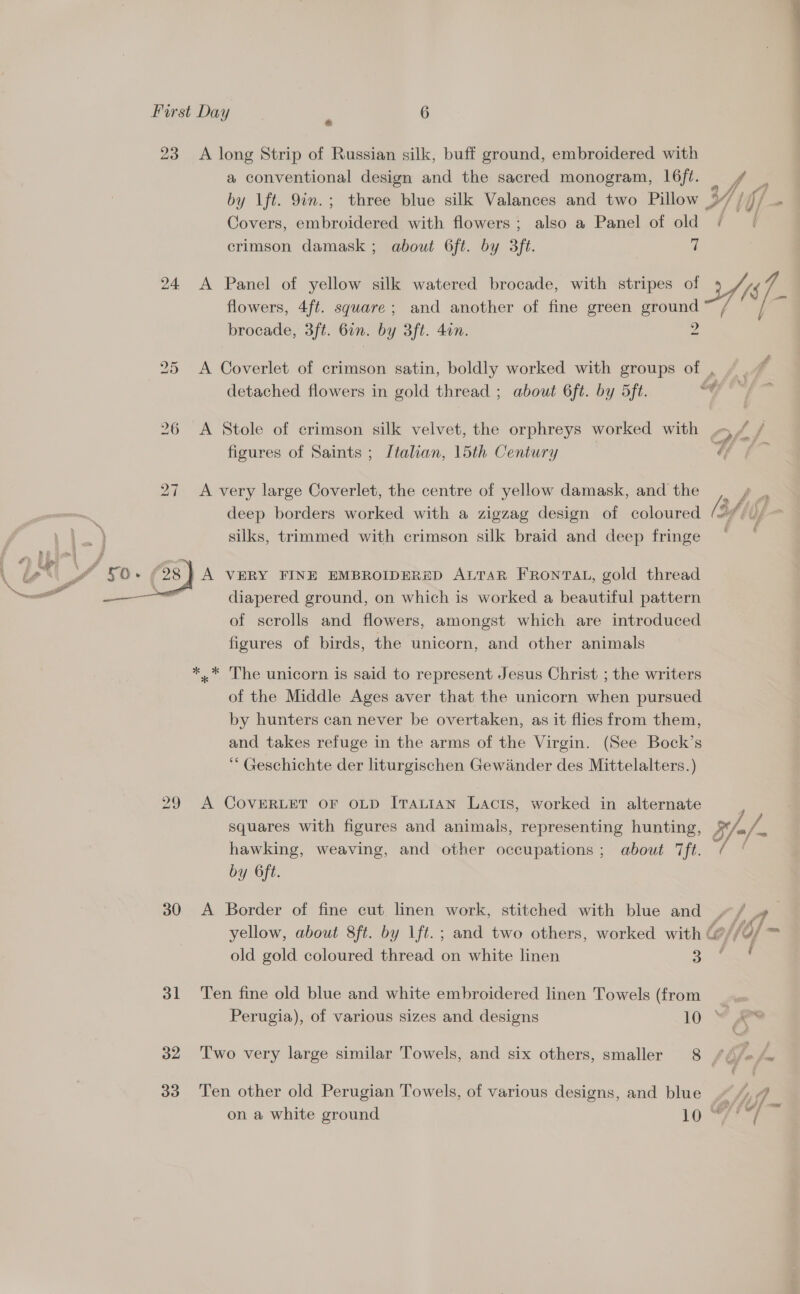 First Day 6
23 A long Strip of Russian silk, buff ground, embroidered with
a conventional design and the sacred monogram, 16ft.
by 1ft. 9in.; three blue silk Valances and two Pillow
Covers, embroidered with flowers; also a Panel of old
crimson damask; about 6ft. by 3ft. 7
24 A Panel of yellow silk watered brocade, with stripes of
flowers, 4ft. square; and another of fine green ground
brocade, 3ft. 6in. by 3ft. 4in. 2
25 A Coverlet of crimson satin, boldly worked with groups of
detached flowers in gold thread; about 6ft. by 5ft.
26 A Stole of crimson silk velvet, the orphreys worked with
figures of Saints; Italian, 15th Century
27 A very large Coverlet, the centre of yellow damask, and the
deep borders worked with a zigzag design of coloured
silks, trimmed with crimson silk braid and deep fringe
50 28 A VERY FINE EMBROIDERED ALTAR FRONTAL, gold thread
diapered ground, on which is worked a beautiful pattern
of scrolls and flowers, amongst which are introduced
figures of birds, the unicorn, and other animals
*** The unicorn is said to represent Jesus Christ; the writers
of the Middle Ages aver that the unicorn when pursued
by hunters can never be overtaken, as it flies from them,
and takes refuge in the arms of the Virgin. (See Bock's
"Geschichte der liturgischen Gewänder des Mittelalters.)
29 A COVERLET OF OLD ITALIAN LACIS, worked in alternate
squares with figures and animals, representing hunting,
hawking, weaving, and other occupations; about 7ft.
by 6ft.
30 A Border of fine cut linen work, stitched with blue and
yellow, about 8ft. by 1ft.; and two others, worked with
old gold coloured thread on white linen 3
31 Ten fine old blue and white embroidered linen Towels (from
Perugia), of various sizes and designs 10
32 Two very large similar Towels, and six others, smaller 8
33 Ten other old Perugian Towels, of various designs, and blue
on a white ground 10